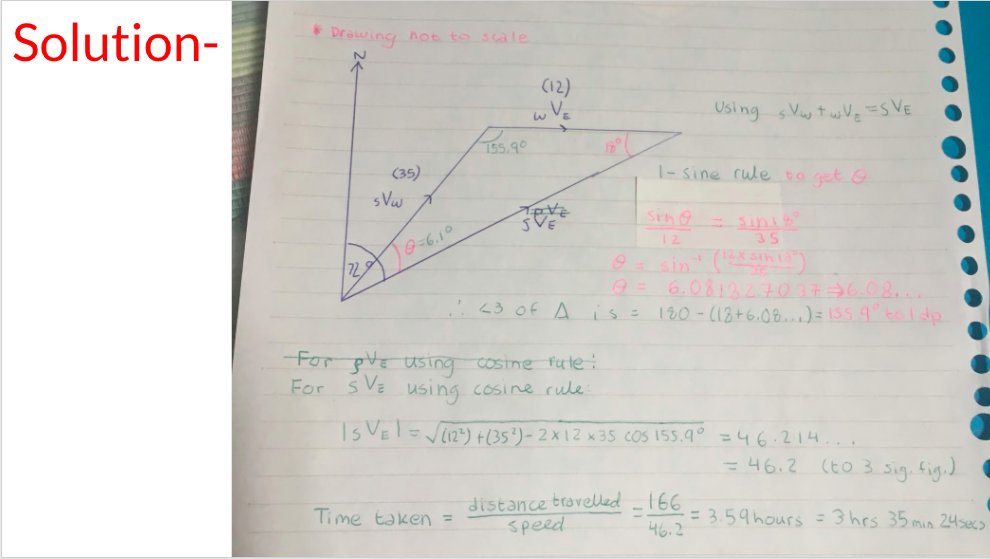 Solution-
* Drawing not to scale
N
(12)
wVE
Using sVw + wVE = sVE
155.9°
18°
(35)
sVw
1- sine rule to get θ
sVE
θ=6.1°
72°
sinθ/12 = sin18°/35
θ = sin⁻¹ (12×sin18°/35)
θ = 6.081327037 ⇒ 6.08...
∴ <3 of Δ is = 180 - (18+6.08...) = 155.9° to 1dp
For pVE using cosine rule:
For sVE using cosine rule:
|sVE| = √(12²)+(35²)-2×12×35 cos 155.9° = 46.214...
= 46.2 (to 3 sig. fig.)
Time taken = distance travelled/speed = 166/46.2 = 3.59 hours = 3 hrs 35 min 24 secs